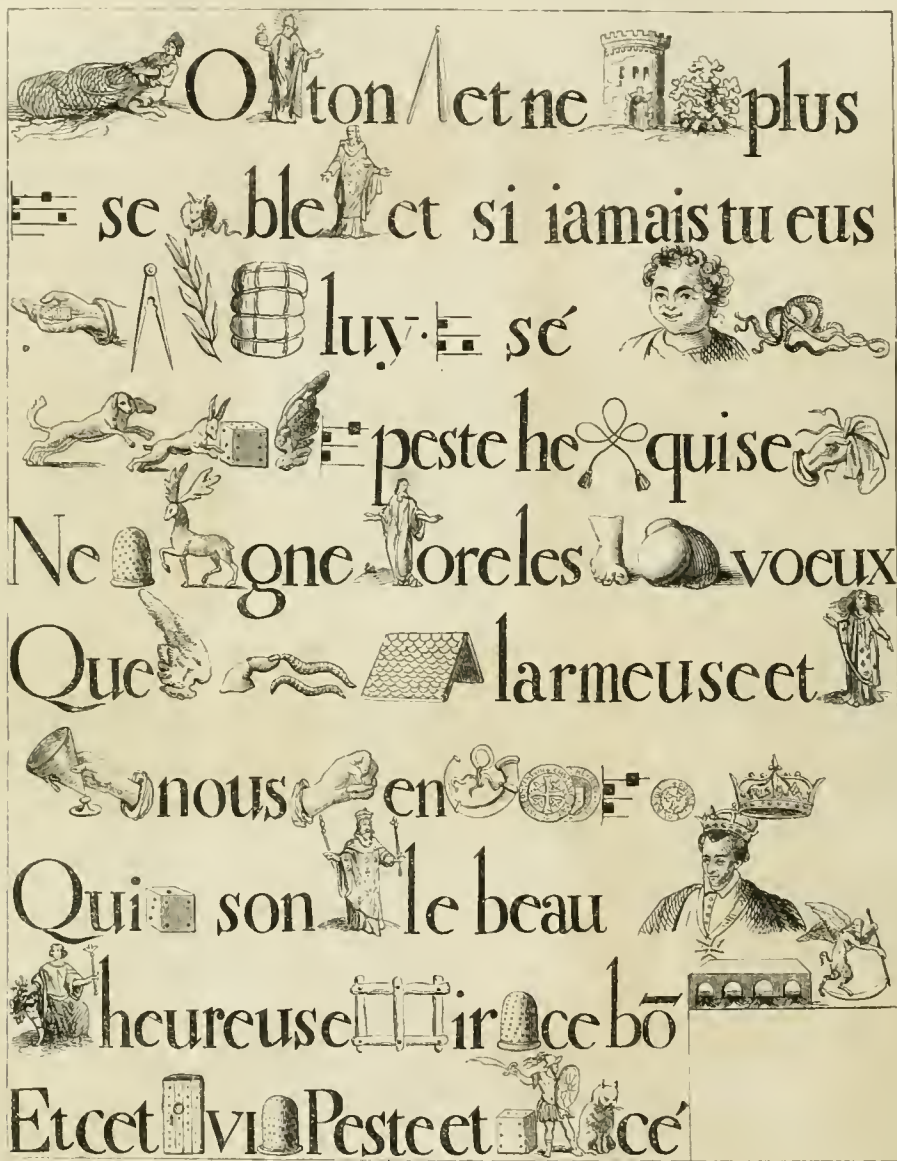 O ton et ne plus
se ble et si iamais tu eus
luy. sé
peste he quise
Ne gne ore les voeux
Que larmeuse et
nous en
Qui son le beau
heureuse ir ce bō
Et cet vi Peste et cé